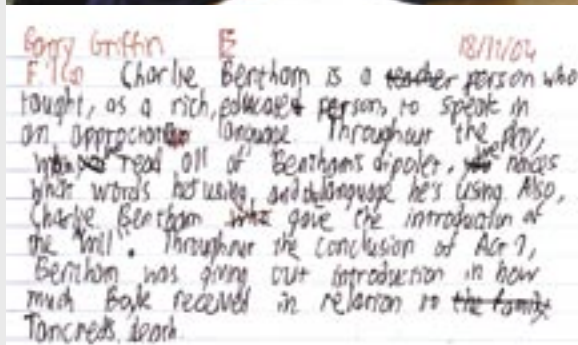 Barry Griffin E 18/11/04
Charlie Bentham is a teacher person who
taught, as a rich, educated person, to speak in
an language. Throughout the play,
read all of Benthams notices
what words he using, and language he's using. Also,
Charlie Bentham who gave the introduction of
the "Will". Throughout the conclusion of Act 1,
Bentham was giving out introduction in how
much Boyle received in relation to the family
Tancreds death.